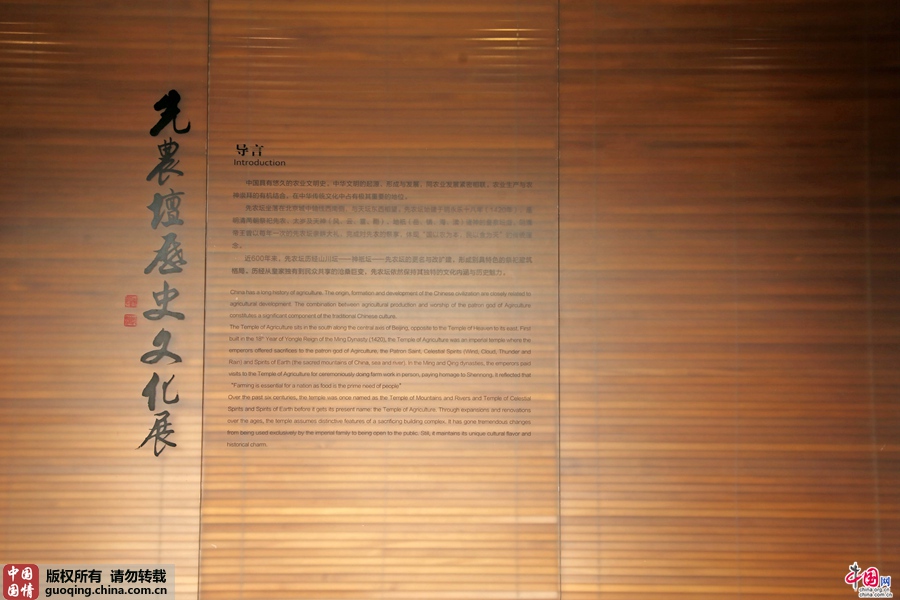 先農壇歷史文化展
导言
Introduction
中国具有悠久的农业文明史，中华文明的起源、形成与发展，同农业发展紧密相联，农业生产与农
神崇拜的有机结合，在中华传统文化中占有极其重要的地位。
近600年来，先农坛历经山川坛——神祇坛——先农坛的更名与改扩建，形成别具特色的祭祀建筑
格局。历经从皇家独有到民众共享的沧桑巨变，先农坛依然保持其独特的文化内涵与历史魅力。
China has a long history of agriculture. The origin, formation and development of the Chinese civilization are closely related to
agricultural development. The combination between agricultural production and worship of the patron god of Agriculture
constitutes a significant component of the traditional Chinese culture.
The Temple of Agriculture sits in the south along the central axis of Beijing, opposite to the Temple of Heaven to its east. First
built in the 18th Year of Yongle Reign of the Ming Dynasty (1420), the Temple of Agriculture was an imperial temple where the
emperors offered sacrifices to the patron god of Agriculture, the Patron Saint, Celestial Spirits (Wind, Cloud, Thunder and
Rain) and Spirits of Earth (the sacred mountains of China, sea and river). In the Ming and Qing dynasties, the emperors paid
visits to the Temple of Agriculture for ceremoniously doing farm work in person, paying homage to Shennong. It reflected that
"Farming is essential for a nation as food is the prime need of people"
Over the past six centuries, the temple was once named as the Temple of Mountains and Rivers and Temple of Celestial
Spirits and Spirits of Earth before it gets its present name: the Temple of Agriculture. Through expansions and renovations
over the ages, the temple assumes distinctive features of a sacrificing building complex. It has gone tremendous changes
from being used exclusively by the imperial family to being open to the public. Still, it maintains its unique cultural flavor and
historical charm.
中国
国情
版权所有 请勿转载
guoqing.china.com.cn
中国网
china.org.cn
china.com.cn